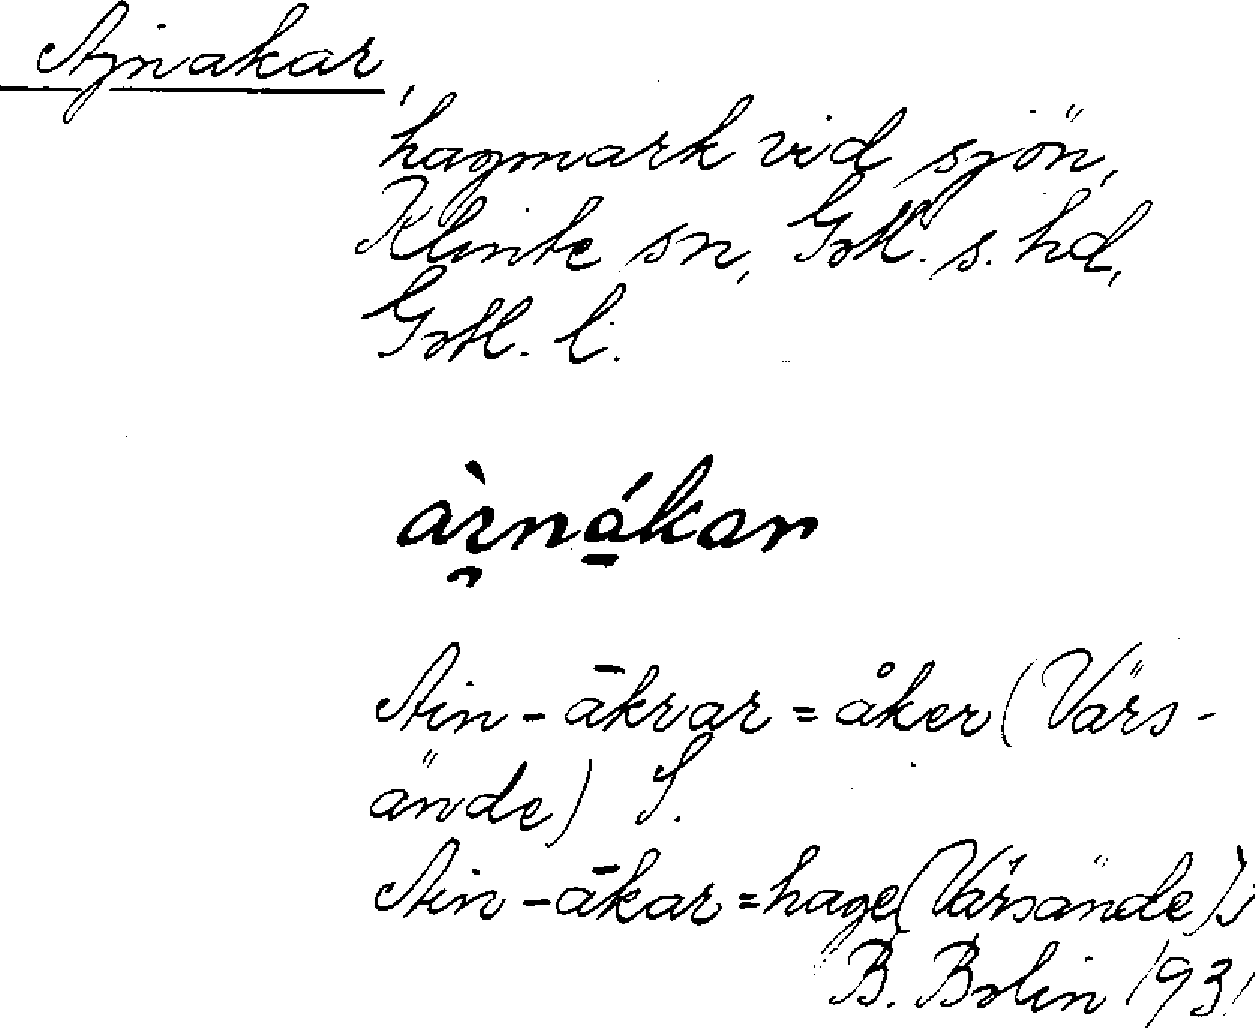 Ajnakar,
hagmark vid sjön,
Klinte sn, Gotl. s. hd,
Gotl. l.
Ain-ākrar = åker (Värs-
ände) S.
Ain-ākar = hage (Värsände) S
B. Bolin 1931